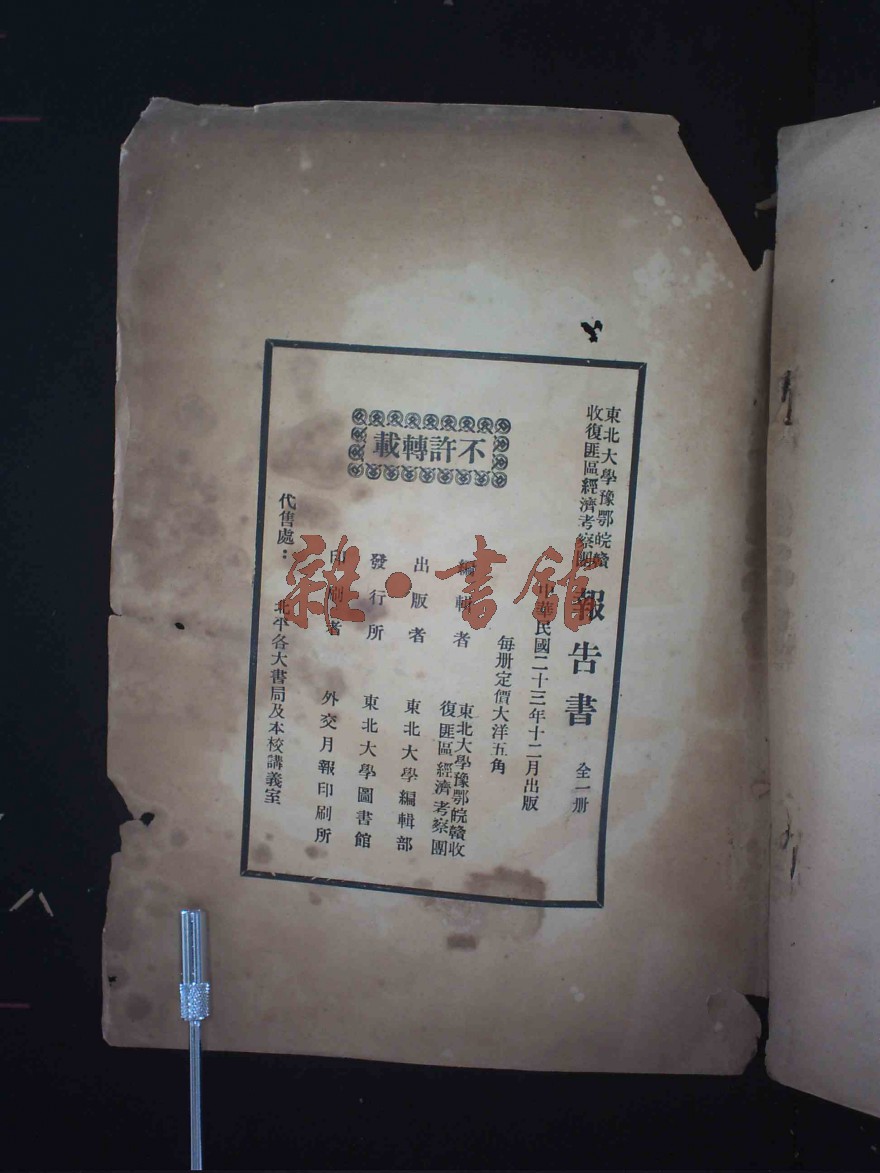 東北大學豫鄂皖贛
收復匪區經濟考察團
報告書 全一册
中華民國二十三年十二月出版
每册定價大洋五角
編輯者 東北大學豫鄂皖贛收
復匪區經濟考察團
出版者 東北大學編輯部
發行所 東北大學圖書館
印刷者 外交月報印刷所
不許轉載
代售處： 北平各大書局及本校講義室
雜·書館